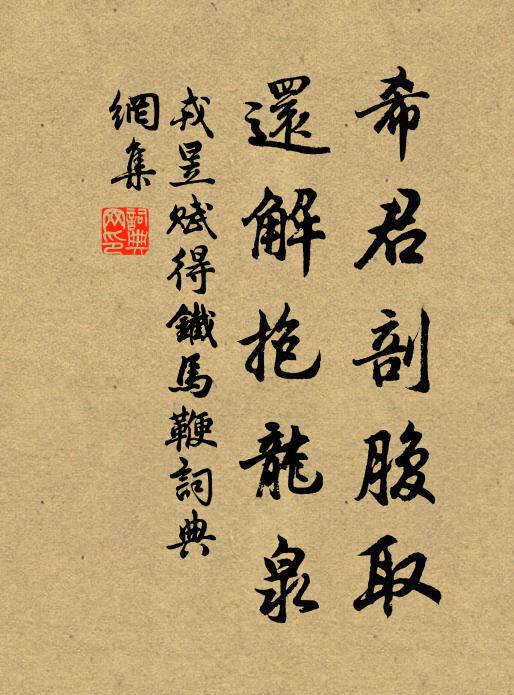 希君剖腹取
還解抱龍泉
戎昱賦得鐵馬鞭詞典
網集
詞典
网印